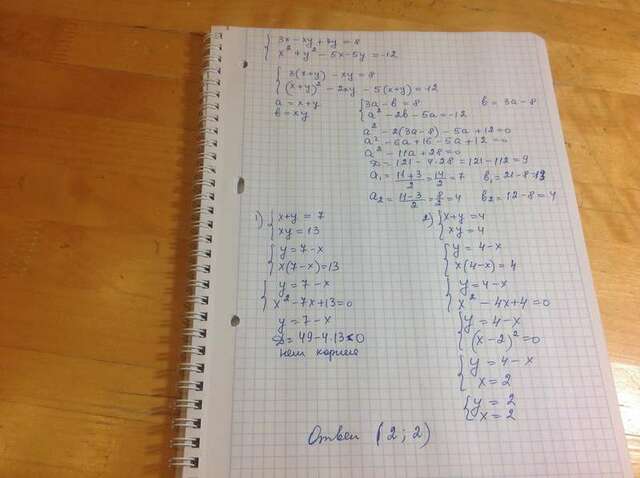 3x - xy + 3y = 8
x² + y² - 5x - 5y = -12
3(x+y) - xy = 8
(x+y)² - 2xy - 5(x+y) = -12
a = x+y
b = xy
3a - b = 8 b = 3a - 8
a² - 2b - 5a = -12
a² - 2(3a-8) - 5a + 12 = 0
a² - 6a + 16 - 5a + 12 = 0
a² - 11a + 28 = 0
D = 121 - 4·28 = 121 - 112 = 9
a₁ = (11+3)/2 = 14/2 = 7 b₁ = 21 - 8 = 13
a₂ = (11-3)/2 = 8/2 = 4 b₂ = 12 - 8 = 4
1) x+y = 7
xy = 13
y = 7-x
x(7-x) = 13
y = 7-x
x² - 7x + 13 = 0
y = 7-x
D = 49 - 4·13 < 0
нет корней
2) x+y = 4
xy = 4
y = 4-x
x(4-x) = 4
y = 4-x
x² - 4x + 4 = 0
y = 4-x
(x-2)² = 0
y = 4-x
x = 2
y = 2
x = 2
Ответ (2; 2)